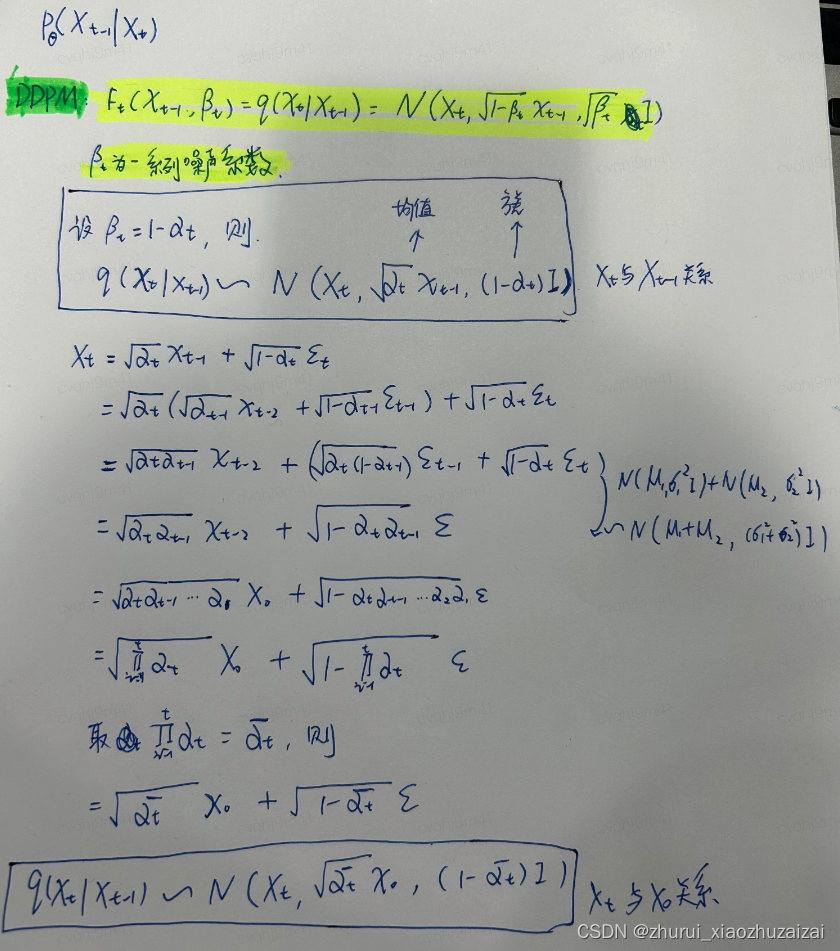 P_θ(X_{t-1}|X_t)
DDPM: F_t(X_{t-1}, β_t) = q(X_t|X_{t-1}) = N(X_t, √(1-β_t) X_{t-1}, √β_t I)
β_t 为一系列噪声系数.
均值 方差
设 β_t = 1-α_t, 则.
q(X_t|X_{t-1}) ~ N(X_t, √α_t X_{t-1}, (1-α_t)I) X_t与X_{t-1}关系
X_t = √α_t X_{t-1} + √(1-α_t) ε_t
= √α_t (√α_{t-1} X_{t-2} + √(1-α_{t-1}) ε_{t-1}) + √(1-α_t) ε_t
= √(α_t α_{t-1}) X_{t-2} + (√(α_t(1-α_{t-1})) ε_{t-1} + √(1-α_t) ε_t } N(μ_1, σ_1² I) + N(μ_2, σ_2² I)
= √(α_t α_{t-1}) X_{t-2} + √(1-α_t α_{t-1}) ε ~ N(μ_1+μ_2, (σ_1²+σ_2²)I)
= √(α_t α_{t-1} … α_1) X_0 + √(1-α_t α_{t-1} … α_2 α_1) ε
= √(∏_{i=1}^t α_t) X_0 + √(1-∏_{i=1}^t α_t) ε
取 ∏_{i=1}^t α_t = ᾱ_t, 则
= √ᾱ_t X_0 + √(1-ᾱ_t) ε
q(X_t|X_{t-1}) ~ N(X_t, √ᾱ_t X_0, (1-ᾱ_t)I) X_t与X_0关系
CSDN @zhurui_xiaozhuzaizai